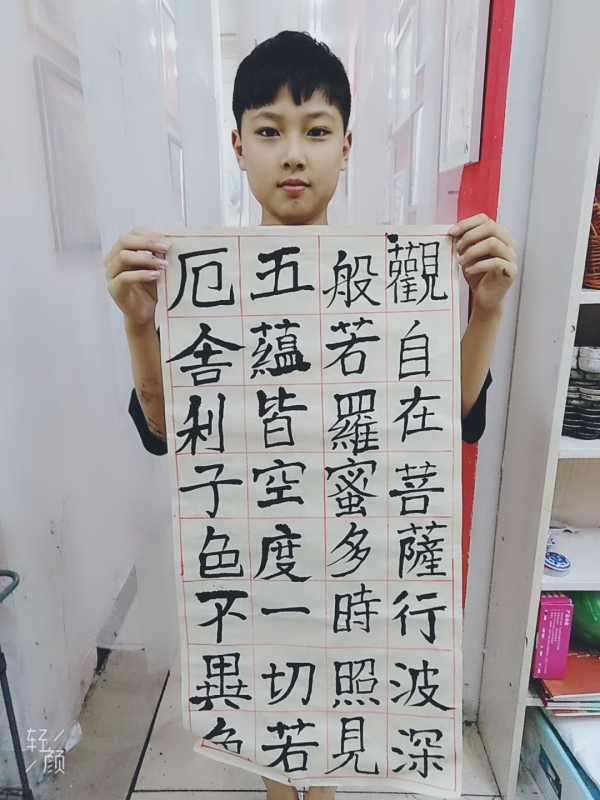 觀自在菩薩行波深
般若羅蜜多時照見
五蘊皆空度一切若
厄舍利子色不異色
轻颜